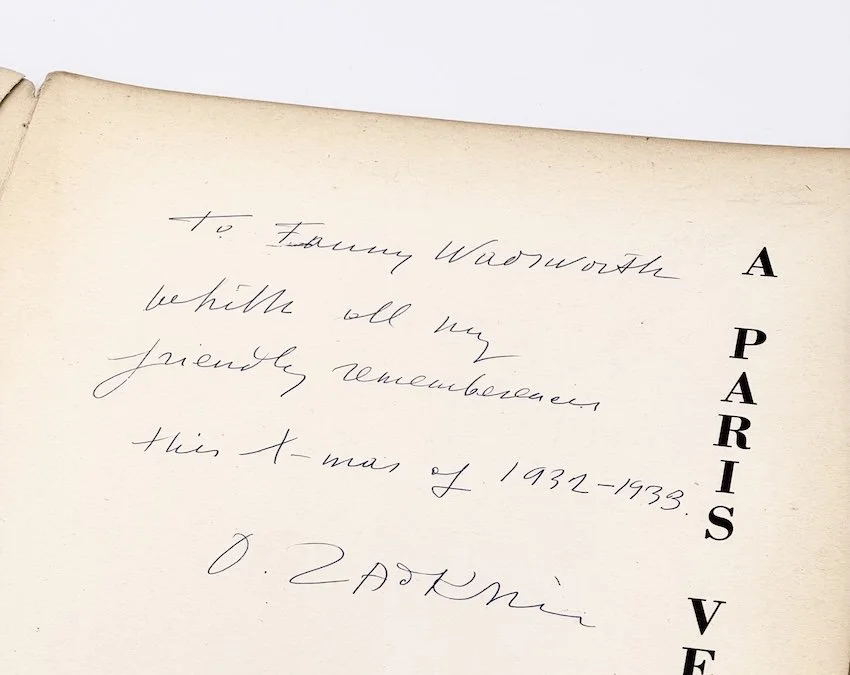 To Fanny Wadsworth
whith all my
friendly rememberences
this X-mas of 1932-1933.
O. ZAdKNin
A
PARIS
VE